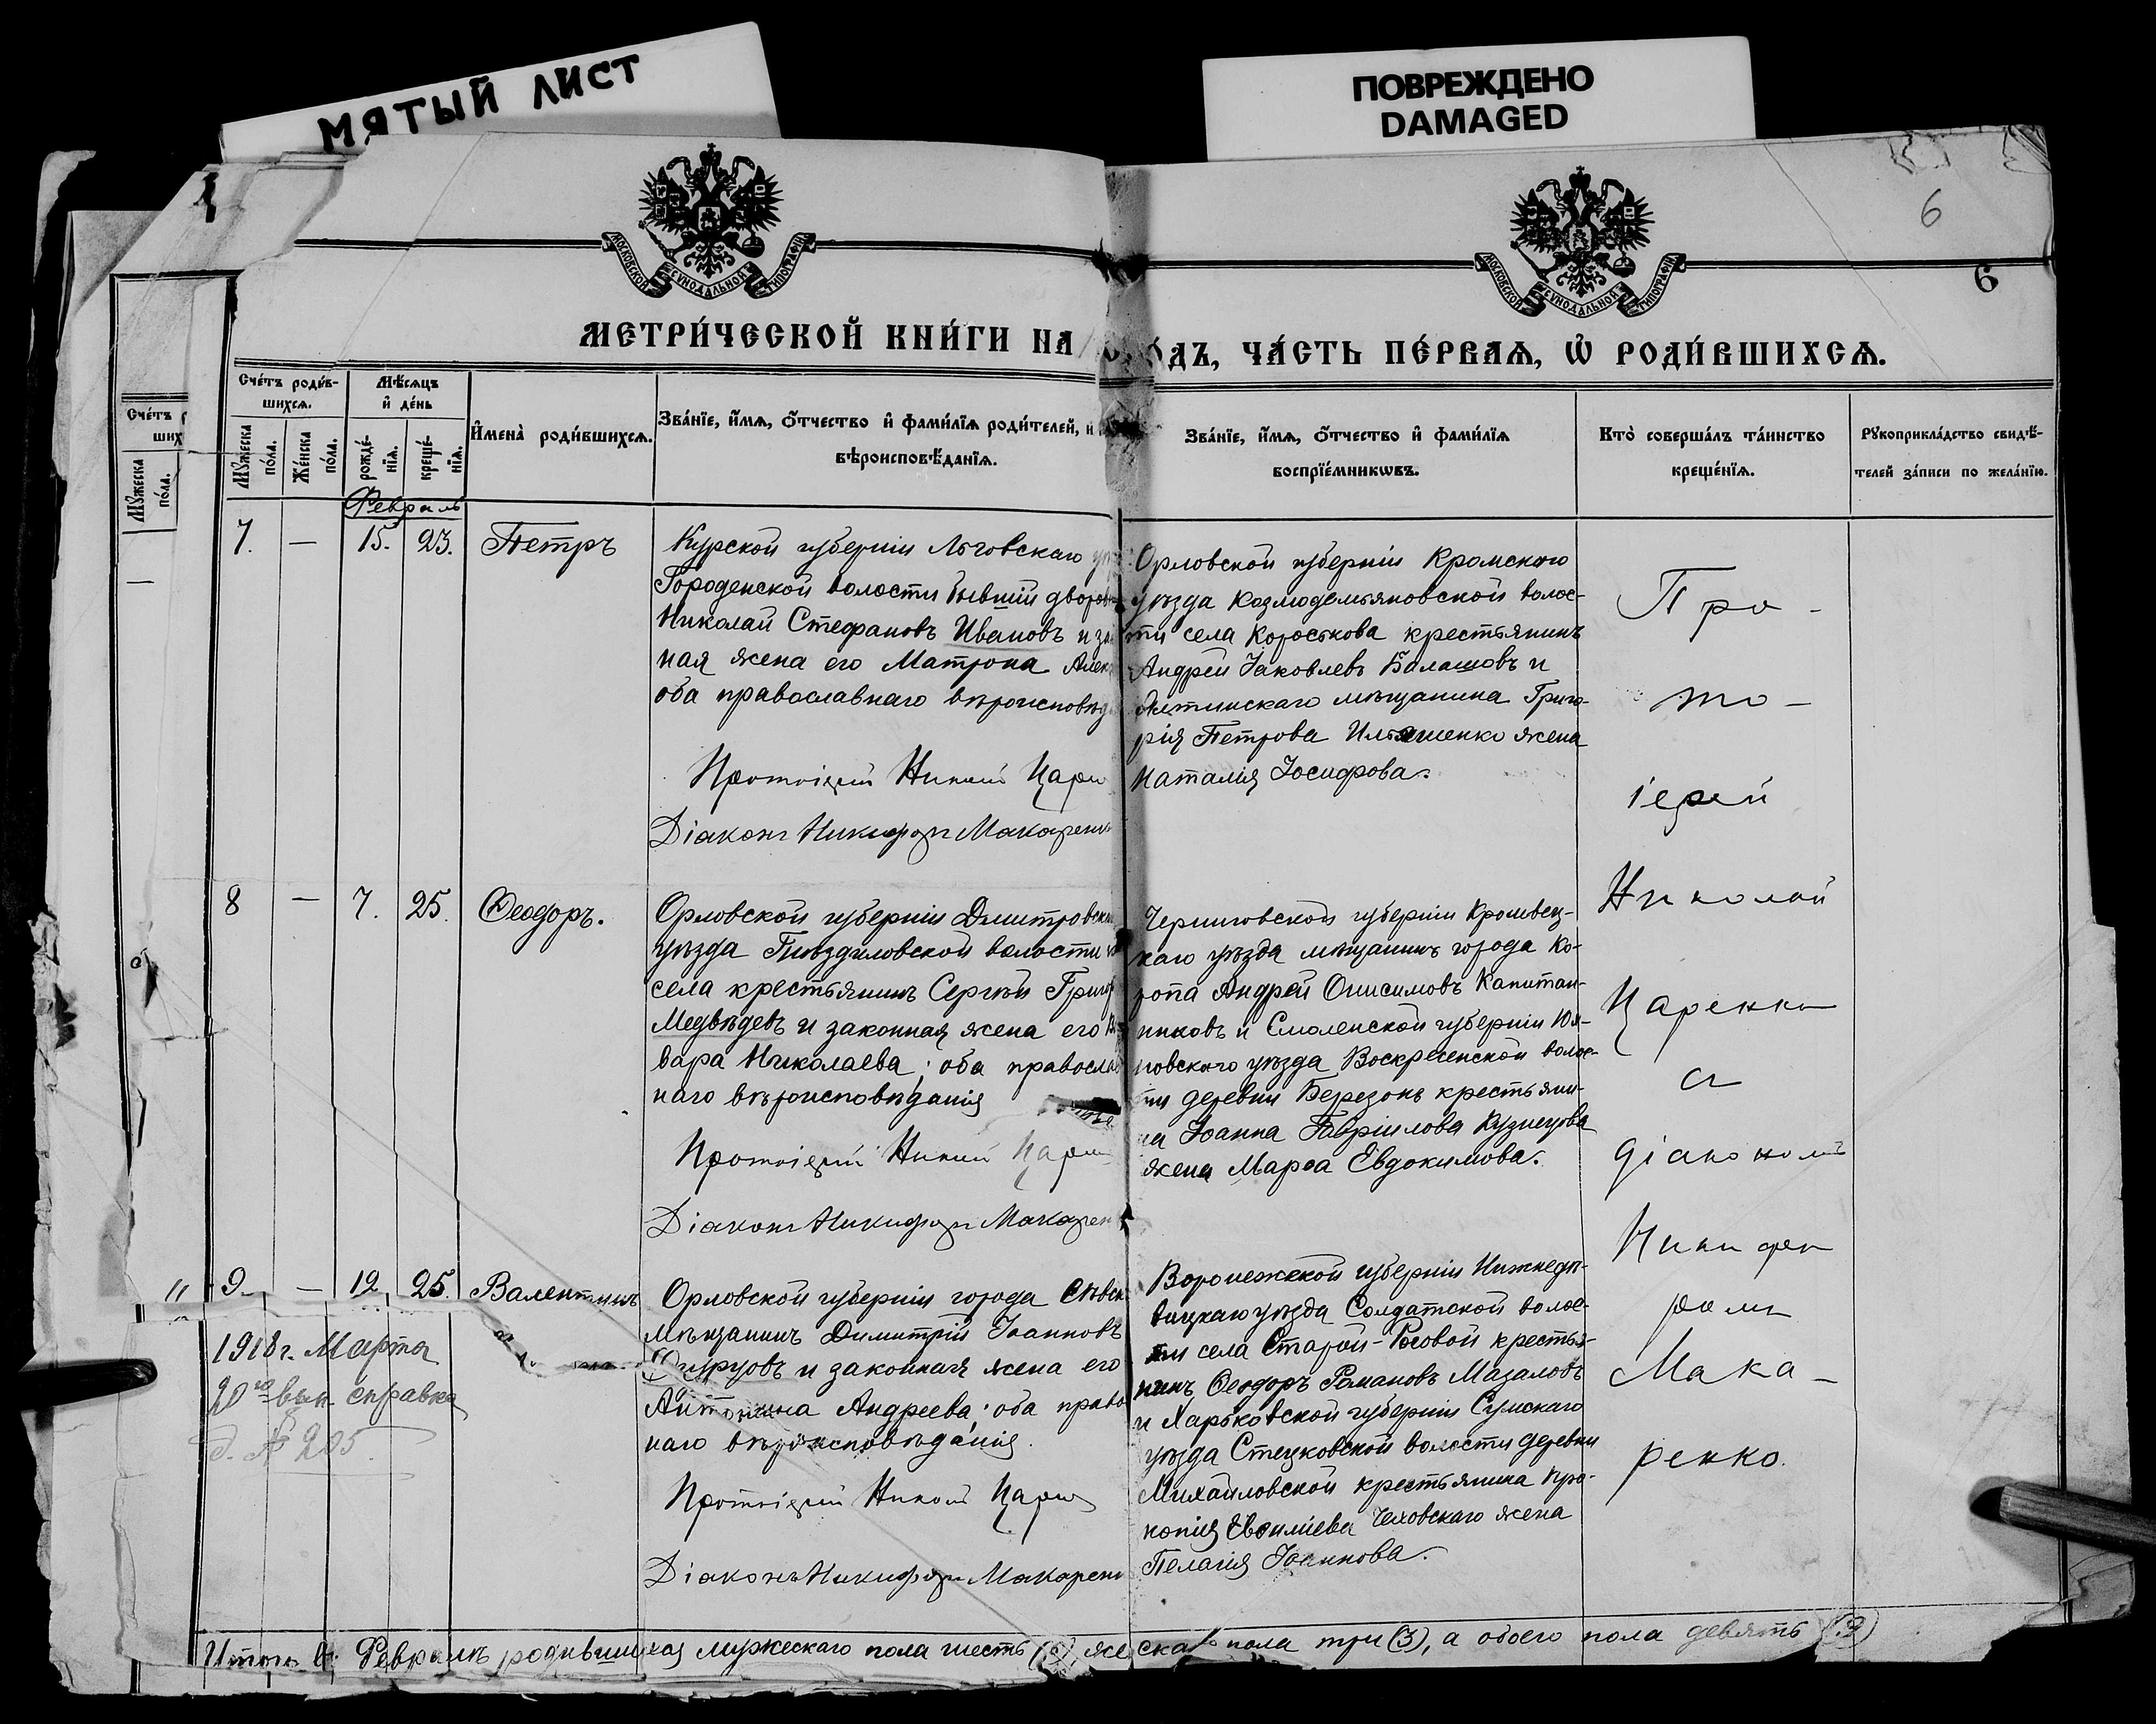 МЯТЫЙ ЛИСТ
ПОВРЕЖДЕНО
DAMAGED
МОСКОВСКОЙ СѴНОДАЛЬНОЙ ТИПОГРАФІИ
МОСКОВСКОЙ СѴНОДАЛЬНОЙ ТИПОГРАФІИ
6
6
МЕТРИ́ЧЕСКОЙ КНИ́ГИ НА
ДЪ, ЧА́СТЬ ПЕ́РВАѦ, Ѿ РОДИ́ВШИХСѦ.
Счéтъ
ших
Мꙋжеска
по́ла.
Счéтъ роди́в-
шихсѧ.
Мꙋжеска
по́ла.
Же́нска
по́ла.
Мѣ́сѧцъ
и҆ де́нь
рожде́-
нїѧ.
креще́-
нїѧ.
И҆мена̀ роди́вшихсѧ.
Зва́нїе, и҆́мѧ, ѻ҆́тчество и҆ фами́лїѧ роди́телей, и
вѣроисповѣ́данїѧ.
Зва́нїе, и҆́мѧ, ѻ҆́тчество и҆ фами́лїѧ
воспрїе́мникѡвъ.
Кто̀ соверша́лъ та́инство
креще́нїѧ.
Рꙋкоприкла́дство свидѣ́-
телей за́писи по жела́нїю.
Февраль
7. — 15. 23. Петръ
Курской губерніи Льговскаго
Городенской волости бывшій дворов
Николай Стефановъ Ивановъ и за
ная жена его Матрона Алек
оба православнаго вѣроисповѣд
Протоіерей Николай Царе
Діаконъ Никифоръ Макаренк
Орловской губерніи Кромского
уѣзда Козмодемьяновской волос-
ти села Короськова крестьянинъ
Андрей Іаковлевъ Балашовъ и
Ялтинскаго мѣщанина Григо-
рія Петрова Ильяшенко жена
Наталія Іосифова.
8 — 7. 25. Ѳеодоръ.
Орловской губерніи Дмитровска
уѣзда Гнѣздиловской волости
села крестьянинъ Сергѣй Григор
Медвѣдевъ и законная жена его
вара Николаева; оба православ
наго вѣроисповѣданія
Протоіерей Николай Царе
Діаконъ Никифоръ Макарен
Черниговской губерніи Кролевец-
каго уѣзда мѣщанинъ города Ко-
ропа Андрей Онисимовъ Капитан-
никовъ и Смоленской губерніи Юх-
новскаго уѣзда Воскресенской волос-
ти деревни Березокъ крестьяни-
на Іоанна Гавріилова Кузнецова
жена Марѳа Евдокимова.
" 9. — 12. 25. Валентинъ
Орловской губерніи города Сѣвск
мѣщанинъ Димитрій Іоанновъ
и законная жена его
Антонина Андреева; оба право
наго вѣроисповѣданія.
Протоіерей Николай Царе
Діаконъ Никифоръ Макаренк
Воронежской губерніи Нижнедѣ-
вицкаго уѣзда Солдатской волос-
ти села Старой-Роговой крестья-
нинъ Ѳеодоръ Романовъ Мазаловъ
и Харьковской губерніи Сумскаго
уѣзда Стецковской волости деревни
Михайловской крестьянина Про-
копія Чеховскаго жена
Пелагія Іоаннова.
Про-
то-
іерей
Николай
Царенко
съ
діакономъ
Никифо
ромъ
Мака-
ренко.
1918 г. Марта
20го вып справка
д. № 205
Итого въ Февралѣ родившихся мужескаго пола шесть (6), женскаго пола три (3), а обоего пола девять (9)